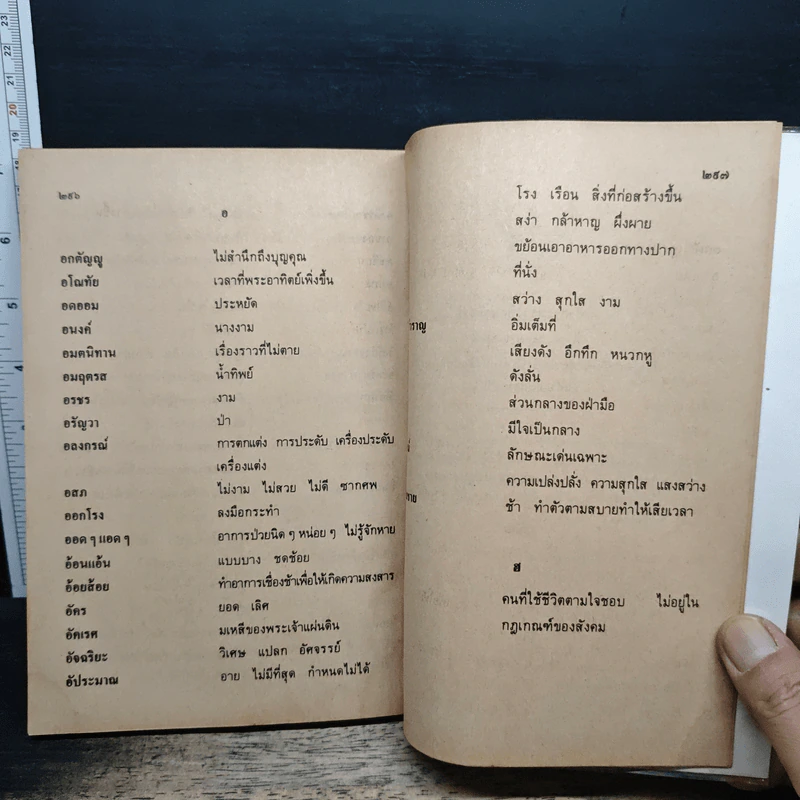 ๒๙๖
อ
อกตัญญู ไม่สำนึกถึงบุญคุณ
อโณทัย เวลาที่พระอาทิตย์เพิ่งขึ้น
อดออม ประหยัด
อนงค์ นางงาม
อมตนิทาน เรื่องราวที่ไม่ตาย
อมฤตรส น้ำทิพย์
อรชร งาม
อรัญวา ป่า
อลงกรณ์ การตกแต่ง การประดับ เครื่องประดับ
เครื่องแต่ง
อสภ ไม่งาม ไม่สวย ไม่ดี ซากศพ
ออกโรง ลงมือกระทำ
ออด ๆ แอด ๆ อาการป่วยนิด ๆ หน่อย ๆ ไม่รู้จักหาย
อ้อนแอ้น แบบบาง ชดช้อย
อ้อยส้อย ทำอาการเชื่องช้าเพื่อให้เกิดความสงสาร
อัคร ยอด เลิศ
อัคเรศ มเหสีของพระเจ้าแผ่นดิน
อัจฉริยะ วิเศษ แปลก อัศจรรย์
อัประมาณ อาย ไม่มีที่สุด กำหนดไม่ได้
๒๙๗
โรง เรือน สิ่งที่ก่อสร้างขึ้น
สง่า กล้าหาญ ผึ่งผาย
ขย้อนเอาอาหารออกทางปาก
ที่นั่ง
สว่าง สุกใส งาม
อิ่มเต็มที่
เสียงดัง อึกทึก หนวกหู
ดังลั่น
ส่วนกลางของฝ่ามือ
มีใจเป็นกลาง
ลักษณะเด่นเฉพาะ
ความเปล่งปลั่ง ความสุกใส แสงสว่าง
ช้า ทำตัวตามสบายทำให้เสียเวลา
ฮ
คนที่ใช้ชีวิตตามใจชอบ ไม่อยู่ใน
กฎเกณฑ์ของสังคม